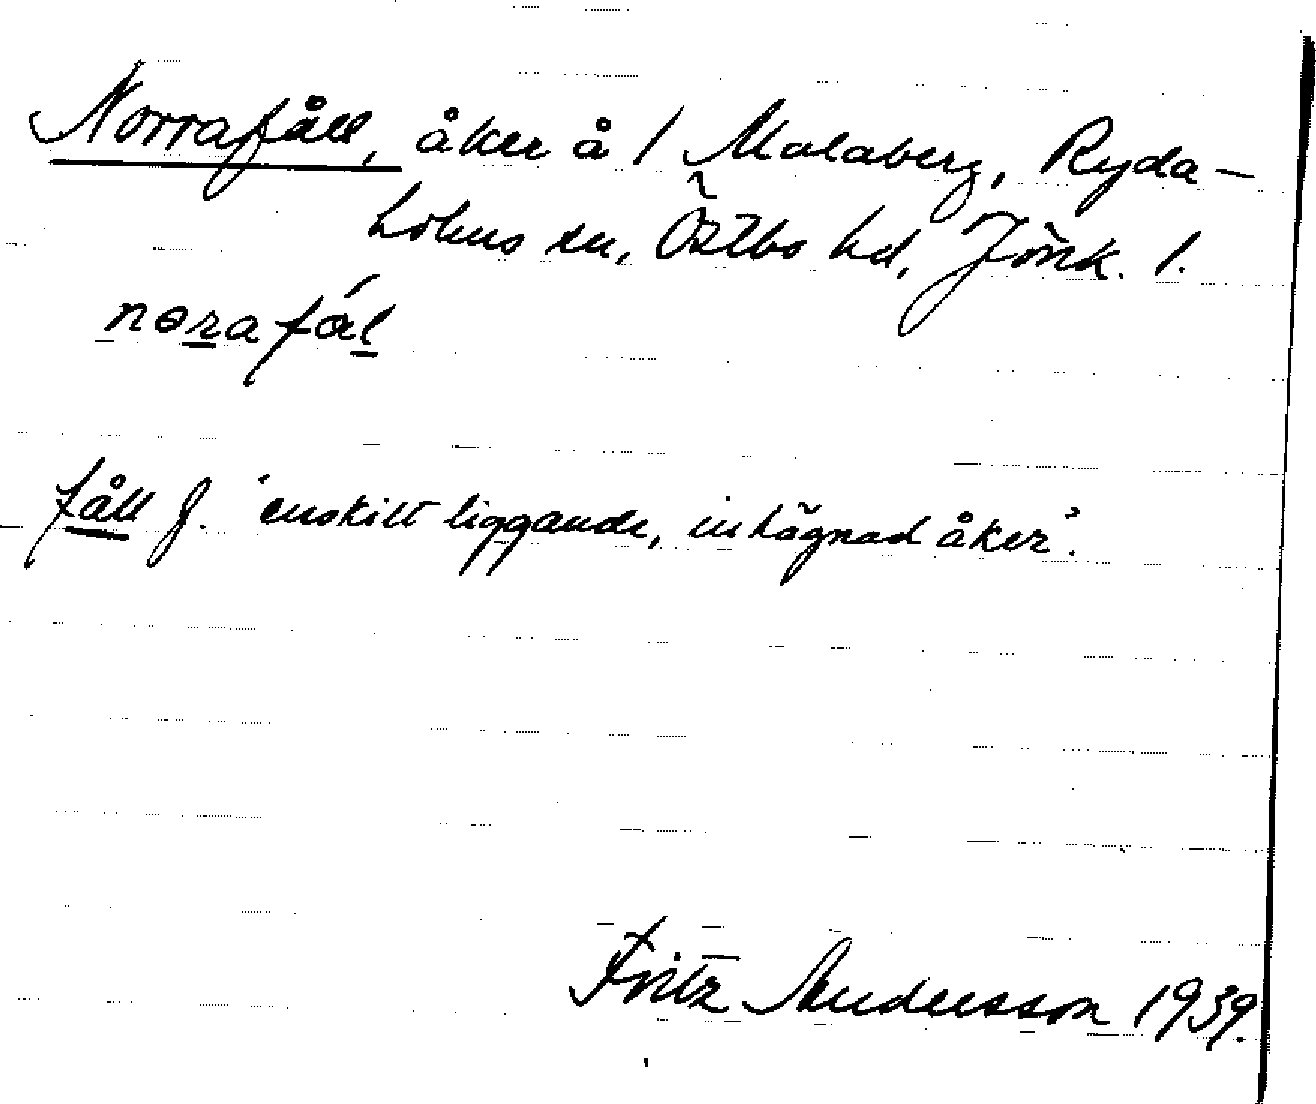 Norrafåll, åker å 1 Malaberg, Ryda-
holms sn, Östbo hd, Jönk. l.
nɵrafál
fåll f. 'enskilt liggande, inhägnad åker'.
Fritz Andersson 1939.